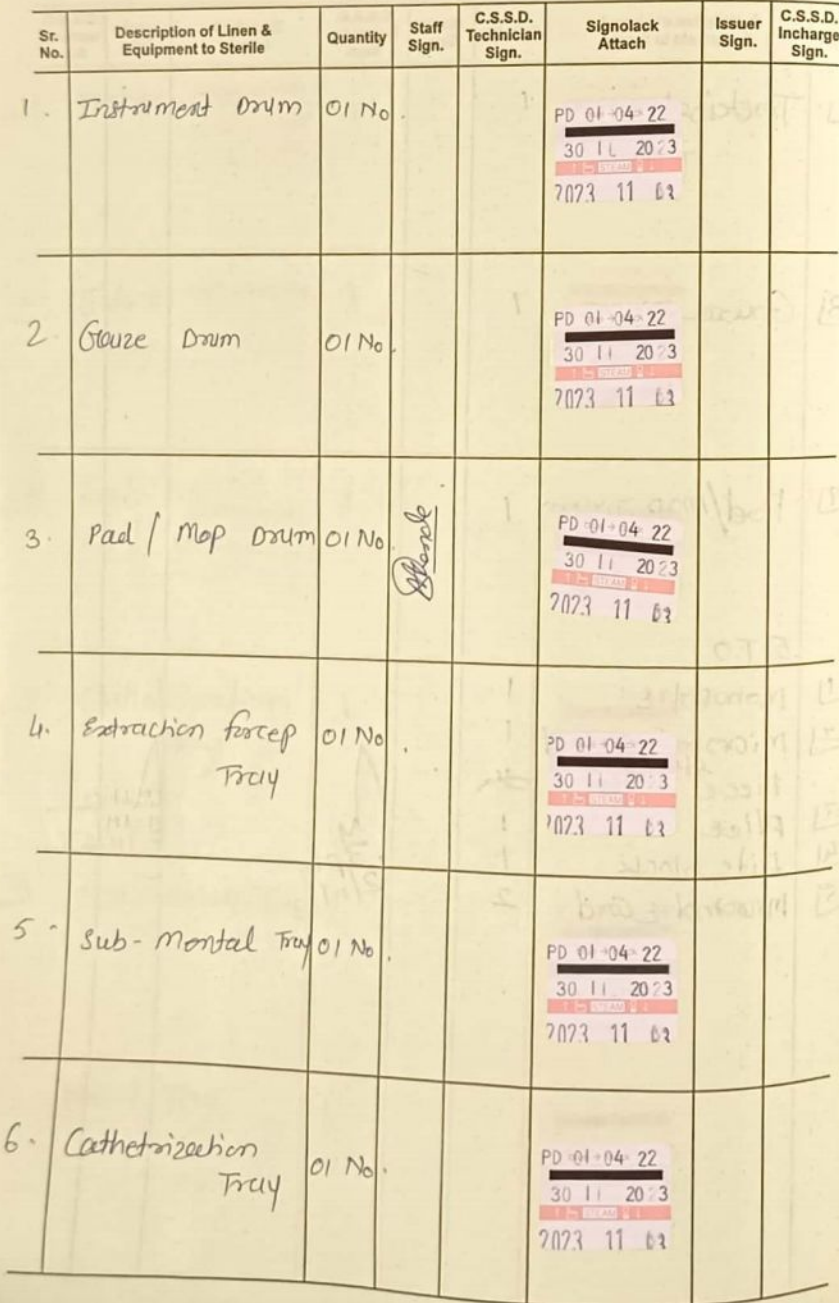 Sr. No. Description of Linen & Equipment to Sterile Quantity Staff Sign. C.S.S.D. Technician Sign. Signolack Attach Issuer Sign. C.S.S.D. Incharge Sign.
1. Instrument Drum 01 No.
PD 01-04-22
30 11 2023
STEAM
2023 11 03
2. Gauze Drum 01 No.
PD 01-04-22
30 11 2023
STEAM
2023 11 03
3. Pad / Mop Drum 01 No.
PD 01-04-22
30 11 2023
STEAM
2023 11 03
4. Extraction forcep Tray 01 No.
PD 01-04-22
30 11 2023
STEAM
2023 11 03
5. Sub-Mental Tray 01 No.
PD 01-04-22
30 11 2023
STEAM
2023 11 03
6. Cathetrization Tray 01 No.
PD 01-04-22
30 11 2023
STEAM
2023 11 03